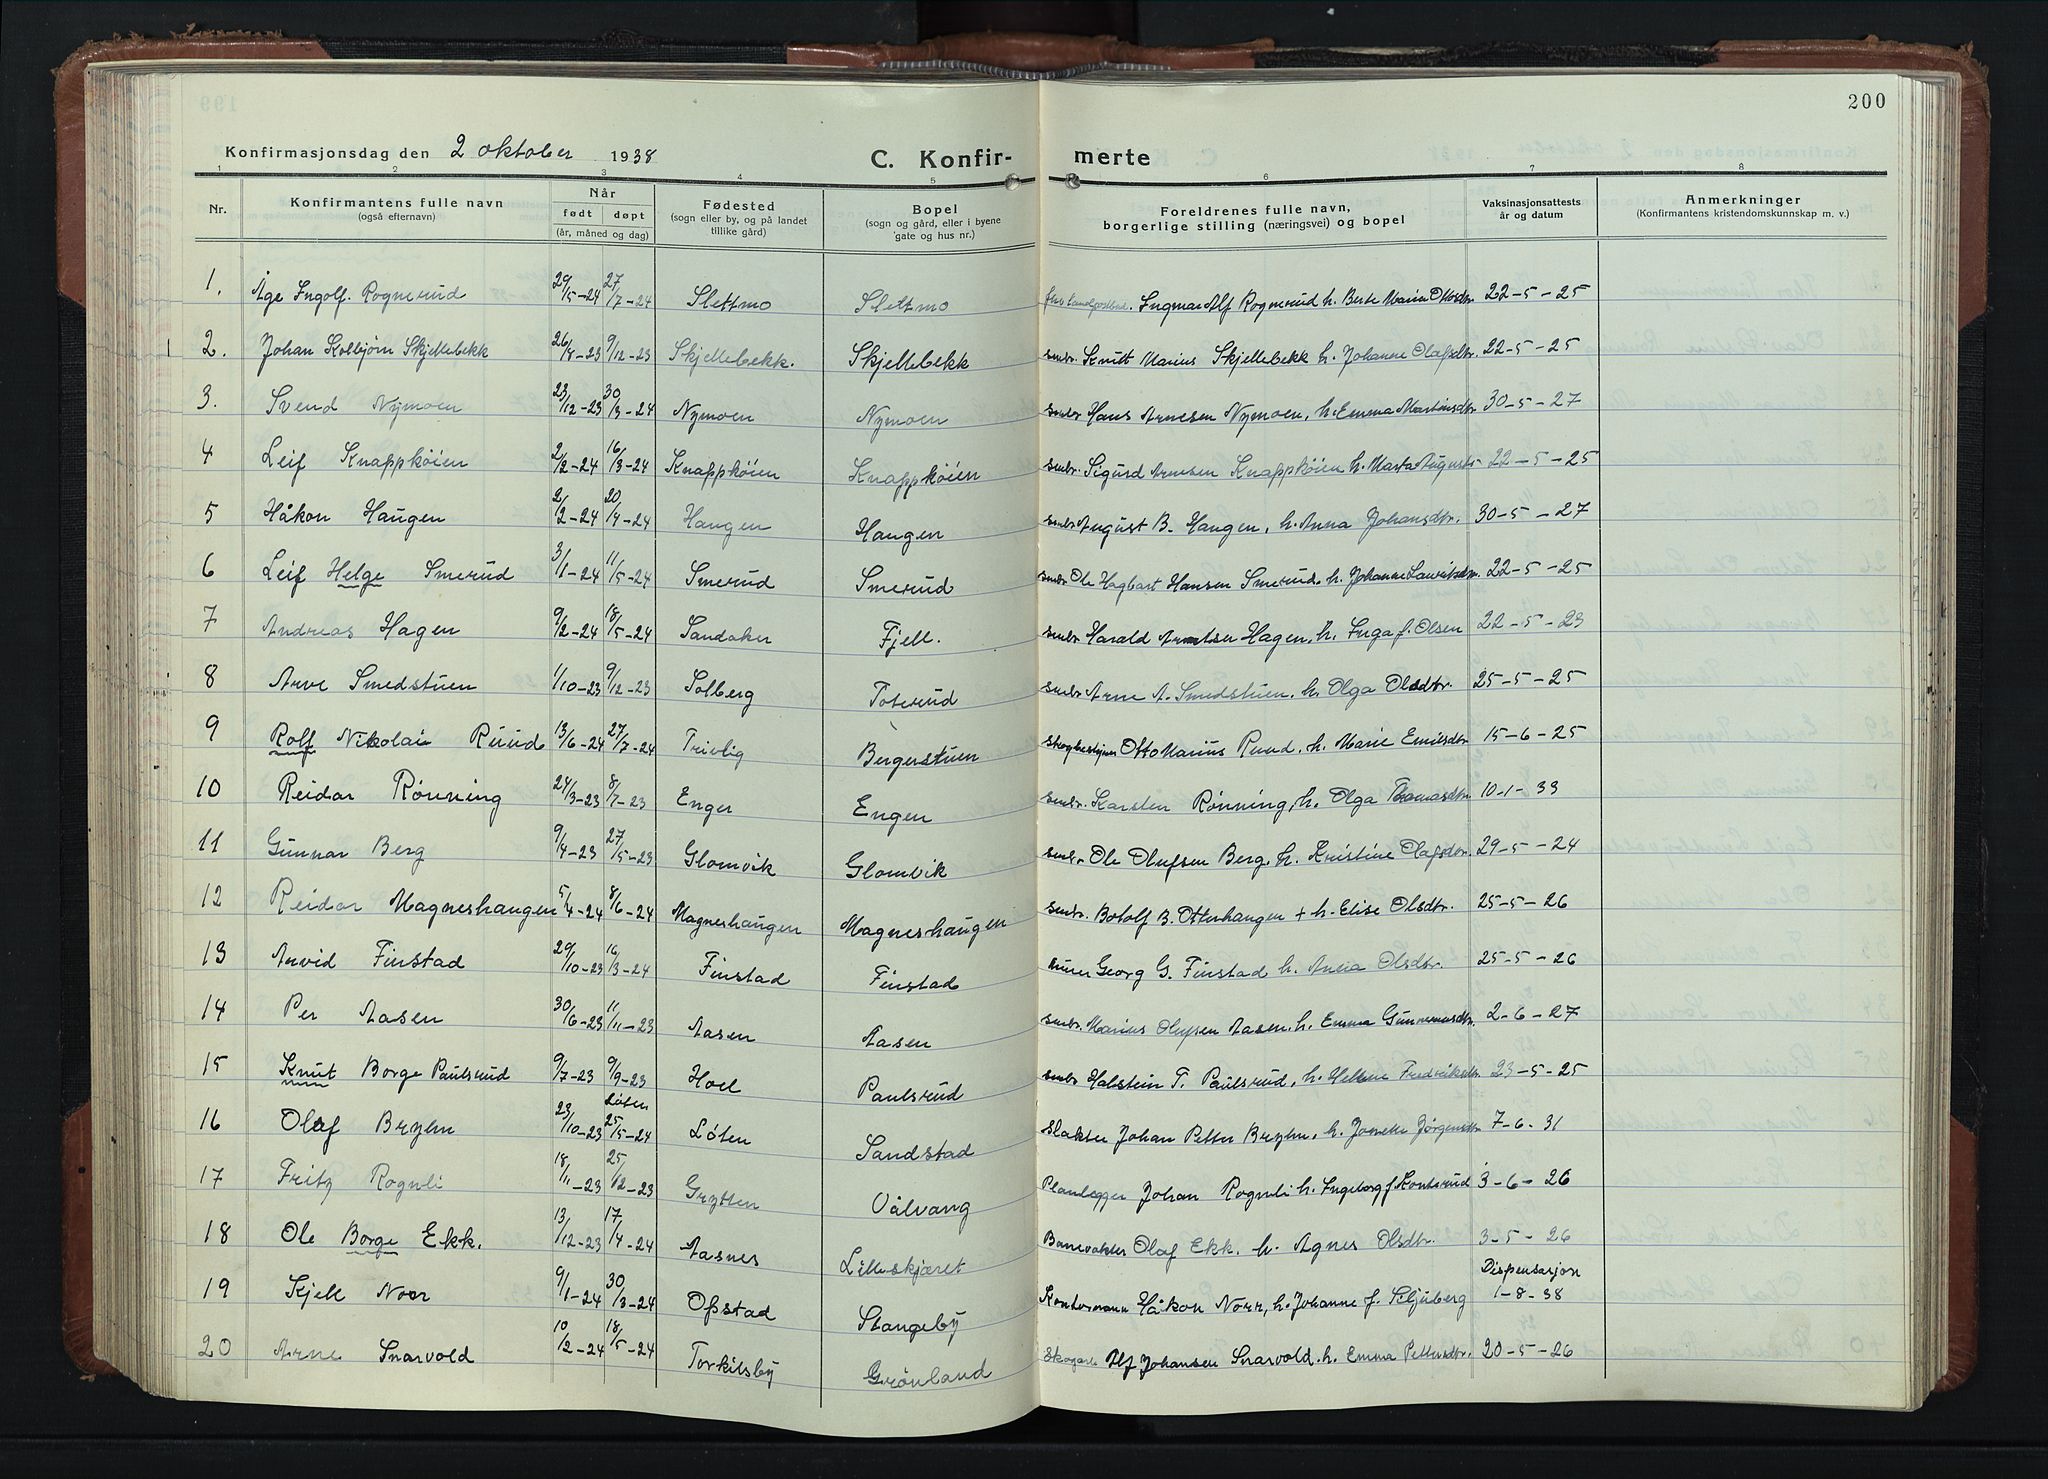 200
Konfirmasjonsdag den 2 oktober 1938 C. Konfir- merte
1 2 3 4 5 6 7 8
Nr. Konfirmantens fulle navn (også efternavn) Når født døpt (år, måned og dag) Fødested (sogn eller by, og på landet tillike gård) Bopel (sogn og gård, eller i byene gate og hus nr.) Foreldrenes fulle navn, borgerlige stilling (næringsvei) og bopel Vaksinasjonsattests år og datum Anmerkninger (Konfirmantens kristendomskunnskap m. v.)
1. Åge Ingolf Rognerud 29/5-24 27/7-24 Slettmo Slettmo Ingmar Alf Rognerud h. Berte Marie Olsdtr. 22-5-25
2. Johan Kolbjørn Skjellebekk 26/4-23 9/12-23 Skjellebekk. Skjellebekk smbr. Knutt Marius Skjellebekk h. Johanne Olafsdtr. 22-5-25
3. Svend Nymoen 23/12-23 30/3-24 Nymoen Nymoen smbr Hans Arnesen Nymoen, h. Emma Martinsdtr 30-5-27
4 Leif Knappkøien 2/2-24 16/3-24 Knappkøien Knappkøien smbr. Sigurd Arnesen Knappkøien h. Marta August 22-5-25
5 Håkon Haugen 2/2-24 20/4-24 Haugen Haugen smbr August B. Haugen, h. Anna Johansdtr. 30-5-27
6 Leif Helge Smerud 3/1-24 11/5-24 Smerud Smerud smbr Ole Hagbart Hansen Smerud. h. Johanne Lauritsdtr. 22-5-25
7 Andreas Hagen 9/2-24 18/5-24 Sandaker Fjell. smbr Harald Arntsen Hagen, h. Inga f. Olsen 22-5-23
8 Arve Smedstuen 1/10-23 9/12-23 Solberg Toterud smbr Arne A. Smedstuen, h. Olga Olsdtr. 25-5-25
9 Rolf Nikolai Ruud 13/6-24 27/7-24 Trivlig Bergerstuen skogbestyrer Otto Marius Ruud, h. Marie Emilsdtr 15-6-25
10 Reidar Rønning 24/3-23 8/7-23 Enger Engen smbr. Karsten Rønning, h. Olga Thomasdtr. 10-1-33
11 Gunnar Berg 9/4-23 27/5-23 Glomvik Glomvik smbr Ole Olufsen Berg, h. Kristine Olafsdtr. 29-5-24
12 Reidar Magneshaugen 5/4-24 8/6-24 Magneshaugen Magneshaugen smbr. Botolf B. Otterhaugen + h. Elise Olsdtr. 25-5-26
13 Arvid Finstad 29/10-23 16/3-24 Finstad Finstad murer Georg G. Finstad h. Anna Olsdtr. 25-5-26
14 Per Aasen 30/6-23 11/11-23 Aasen Aasen smbr. Marius Olufsen Aasen, h. Emma Gunnerusdtr. 2-6-27
15 Knut Borge Paulsrud 9/7-23 9/9-23 Hoel Paulsrud smbr Halstein T. Paulsrud, h. Helene Fredriksdtr 23-5-25
16 Olaf Bryhn 23/10-23 Løten 25/5-24 Løten Sandstad slakter Johan Petter Bryhn, h. Josette Jørgensdtr 7-6-31
17 Fritz Rognli 18/11-23 25/12-23 Grytten Vålvang Planlegger Johan Rognli h. Ingeborg f. Kontsrud 3-6-26
18 Ole Borge Ekk. 13/12-23 17/4-24 Aasnes Lilleskjæret Banevokter Olaf Ekk. h. Agnes Olsdtr. 3-5-26
19 Kjell Norr 9/1-24 30/3-24 Opstad Stangeby Kontormann Håkon Norr, h. Johanne f. Seljuberg Dispensasjon 1-8-38
20 Arne Snarvold 10/2-24 18/5-24 Torkilsby Grønland Skogarb Alf Johansen Snarvold. h. Emma Pettersdtr. 20-5-26